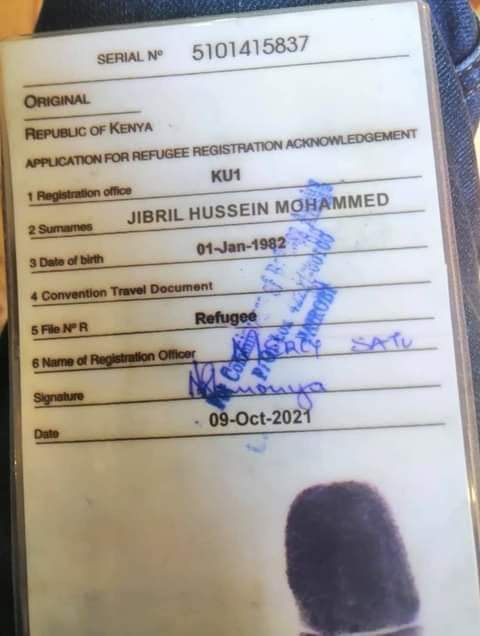 SERIAL Nº 5101415837
ORIGINAL
REPUBLIC OF KENYA
APPLICATION FOR REFUGEE REGISTRATION ACKNOWLEDGEMENT
1 Registration office KU1
2 Surnames JIBRIL HUSSEIN MOHAMMED
3 Date of birth 01-Jan-1982
4 Convention Travel Document
5 File Nº R Refugee
6 Name of Registration Officer
Signature
Date 09-Oct-2021